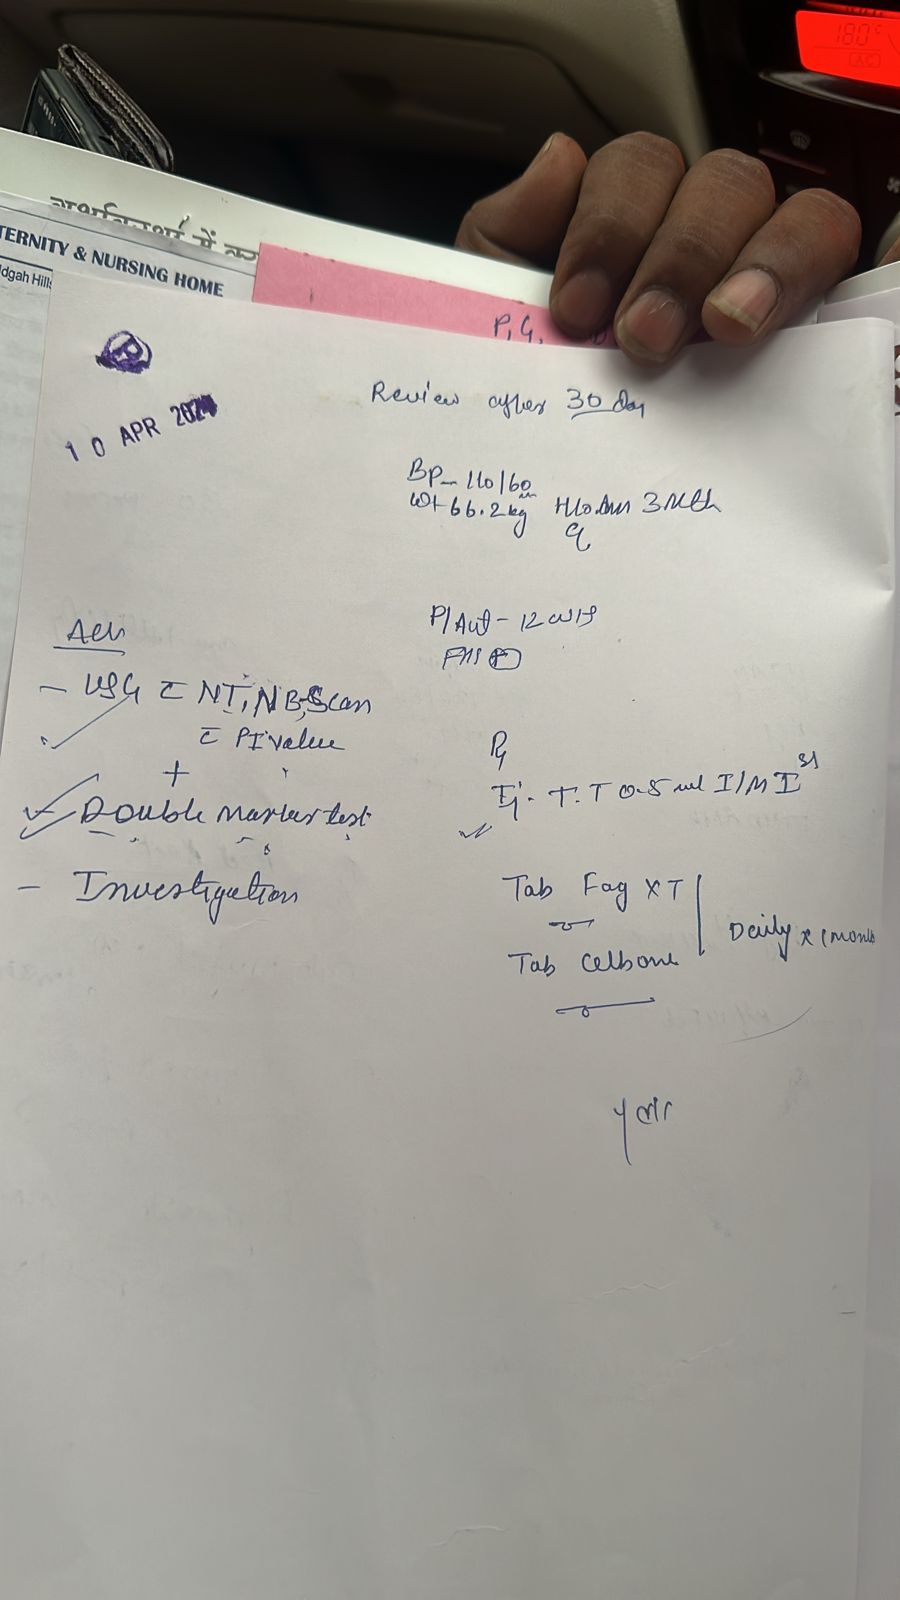 18.0°C
AC
गर्भावस्था में
TERNITY & NURSING HOME
Idgah Hills
P, G,
R
10 APR 2024
Review after 30 day
BP - 110/60
Wt 66.2 kg H/o Am 3 Mth
P/Abd - 12 wks
FHS +
Adv
- USG c̄ NT, NB Scan
c̄ PI value
+
Double Marker test
- Investigation
Rx
Inj. T.T 0.5 ml I/M Ist
Tab Fag XT
Tab Celbone
Daily x 1 month